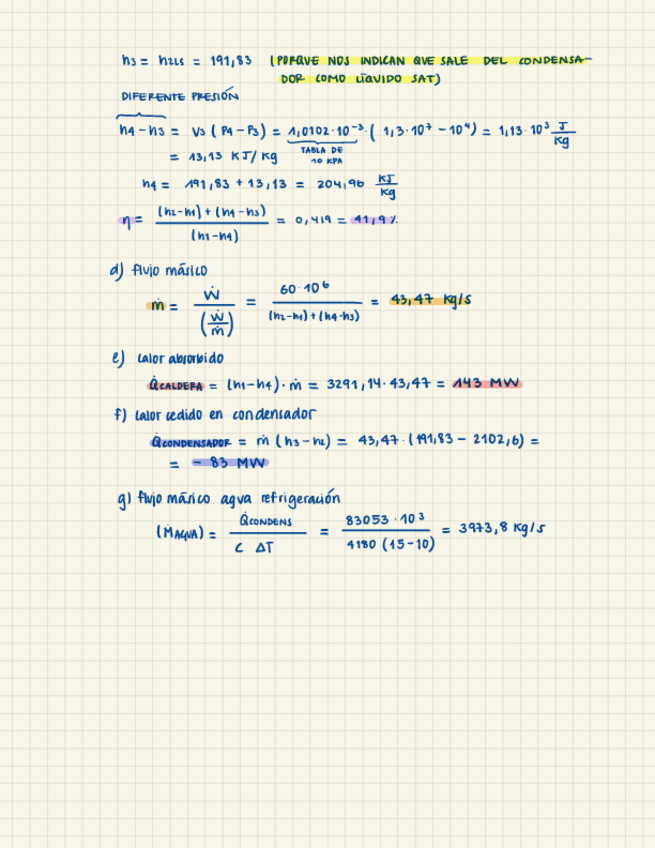 h3 = h2LS = 191,83 (PORQUE NOS INDICAN QUE SALE DEL CONDENSA-
DOR COMO LÍQUIDO SAT)
DIFERENTE PRESIÓN
h4 - h3 = V3 ( P4 - P3 ) = 1,0102·10⁻³·( 1,3·10⁷ - 10⁴) = 1,13·10³ J/Kg
TABLA DE
10 KPA
= 13,13 KJ/Kg
h4 = 191,83 + 13,13 = 204,96 KJ/Kg
η = (h2-h1) + (h4-h3) / (h1-h4) = 0,419 = 41,9 %
d) flujo másico
ṁ = Ẇ / (Ẇ/ṁ) = 60·10⁶ / (h2-h1)+(h4-h3) = 43,47 Kg/s
e) calor absorbido
Q̇CALDERA = (h1-h4)·ṁ = 3291,14·43,47 = 143 MW
f) calor cedido en condensador
Q̇CONDENSADOR = ṁ (h3-h2) = 43,47·(191,83 - 2102,6) =
= - 83 MW
g) flujo másico agua refrigeración
(ṀAGUA) = Q̇CONDENS / C ΔT = 83053·10³ / 4180 (15-10) = 3973,8 Kg/s